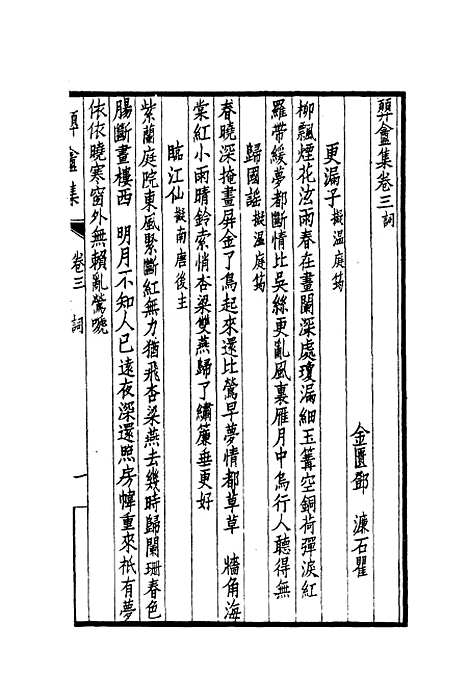 羿盦集卷三詞
金匱鄧濂石瞿
更漏子擬溫庭筠
柳飄煙花泫雨春在畫闌深處瓊漏細玉篝空銅荷彈淚紅
羅帶緩夢都斷情比吳絲更亂風裏雁月中烏行人聽得無
歸國謠擬溫庭筠
春曉深掩畫屏金了鳥起來還比鶯早夢情都草草　牆角海
棠紅小雨晴鈴索悄杏梁雙燕歸了繡簾垂更好
臨江仙擬南唐後主
紫蘭庭院東風緊斷紅無力猶飛杏梁燕去幾時歸闌珊春色
腸斷畫樓西　明月不知人已遠夜深還照房幃重來祇有夢
依依曉寒窗外無賴亂鶯嗁
集
卷三　詞
一